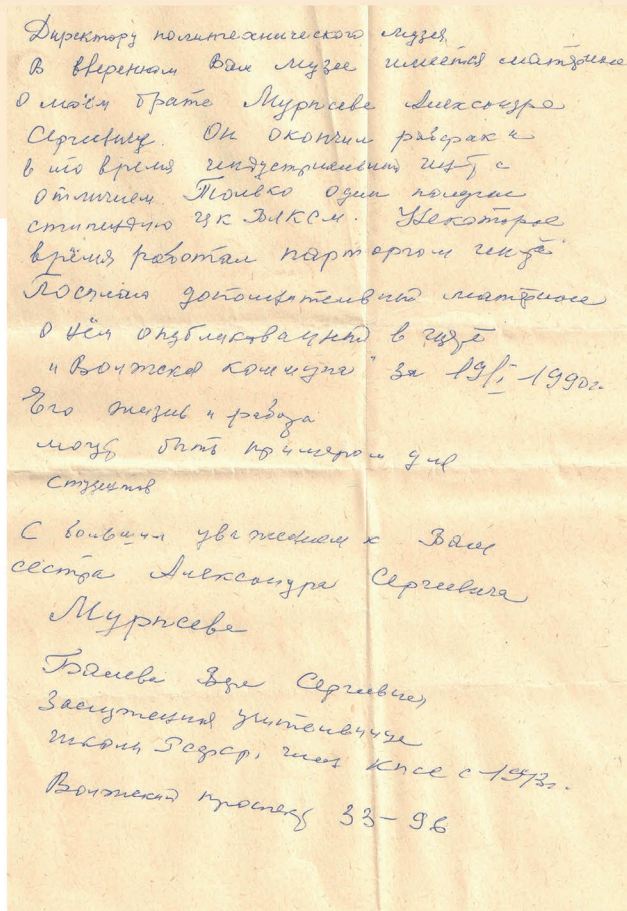 Директору политехнического музея
В вверенном Вам музее имеется материал
о моём брате Мурысеве Александре
Сергеевиче. Он окончил рабфак и
в то время индустриальный инт, с
отличием. Только один получал
стипендию цк ВЛКСМ. Некоторое
время работал парторгом
Посылаю дополнительный материал
о нём опубликованный в
"Волжская коммуна" за 19/I 1990г.
Его жизнь и работа
могут быть примером для
студентов
С большим уважением к Вам
сестра Александра Сергеевича
Мурысева
Сергеевна
Заслуженная учительница
школы РСФСР, член КПСС с
Волжский проспект 33-96